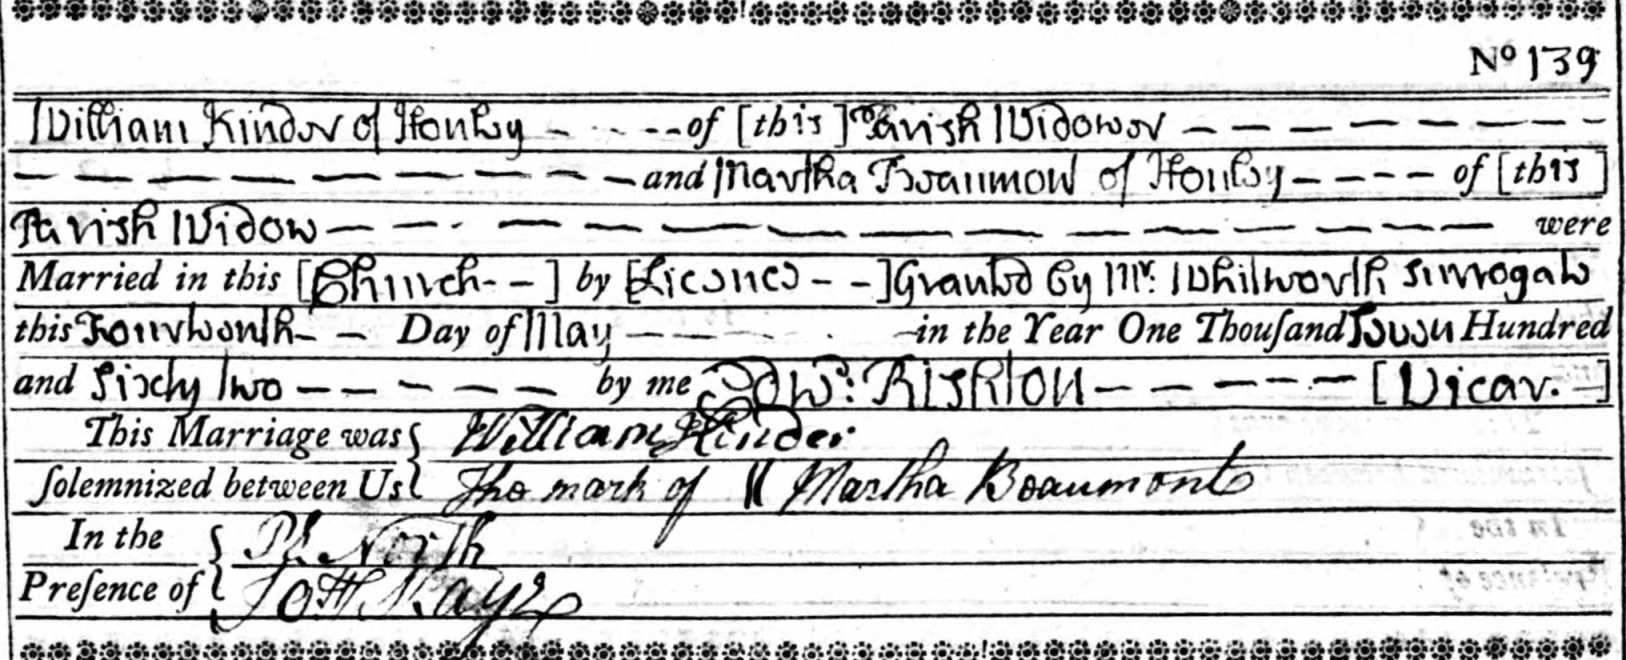 No 139
William Kinder of Honley - - - - of [this] Parish Widower - - - - - - - - -
- - - - - - - - - and Martha Beaumont of Honley - - - - of [this]
Parish Widow - - - - - - - - - - - - - were
Married in this [Church - -] by [Licence - -] Granted by Mr. Whitworth Surrogate
this Fourteenth - - Day of May - - - - in the Year One Thouſand Seven Hundred
and Sixty two - - - - - by me Edwd: Rishton - - - - - [Vicar. -]
This Marriage was { William Kinder
ſolemnized between Us { The mark of || Martha Beaumont
In the { North
Preſence of { Kaye